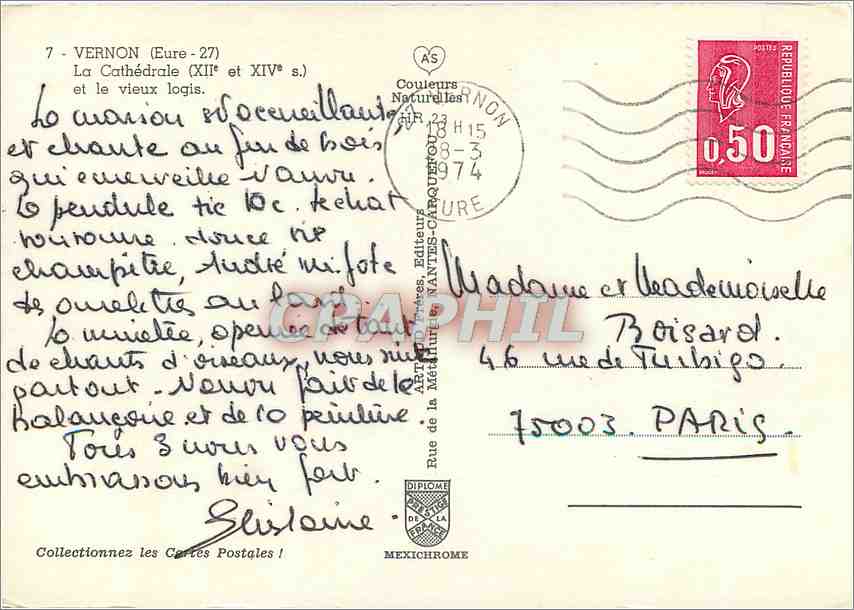 7 - VERNON (Eure - 27)
La Cathédrale (XIIe et XIVe s.)
et le vieux logis.
AS
Couleurs
Naturelles
HR 23
27 VERNON
18 H 15
8-3
1974
EURE
POSTES
REPUBLIQUE FRANÇAISE
0,50
La maison est accueillante,
et chante au feu de bois
qui émerveille
La pendule tic tac. le chat
ronronne. douce vie
champêtre, André mijote
des omelettes au lard.
La minette, de tant
de chants d'oiseaux, nous suit
partout. fait de la
balançoire et de la peinture.
Tous 3 nous vous
embrassons bien fort.
Ghislaine.
Madame et Mademoiselle
Boisard.
46 rue de Turbigo.
75003. PARIS.
ARTAUD Frères, Editeurs
Rue de la Métallurgie, NANTES-CARQUEFOU
CPAPHIL
DIPLOME
PRESTIGE
DE LA
FRANCE
MEXICHROME
Collectionnez les Cartes Postales !